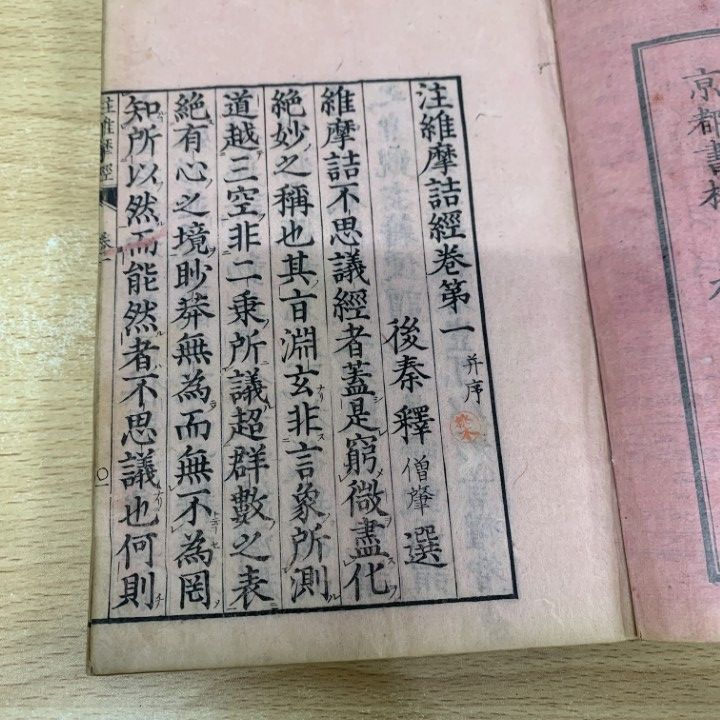 京都書
注維摩詰經卷第一 并序
後秦釋僧肇選
維摩詰不思議經者蓋是窮微盡化
絶妙之稱也其旨淵玄非言象所測
道越三空非二乗所議超群數之表
絶有心之境眇莽無為而無不為罔
知所以然而能然者不思議也何則
注維摩經 卷一